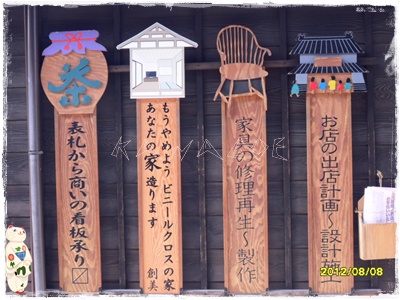 茶
表札から商いの看板承り〼
もうやめよう ビニールクロスの家
あなたの家造ります
創美
家具の修理再生〜製作
お店の出店計画〜設計施工
2012/08/08